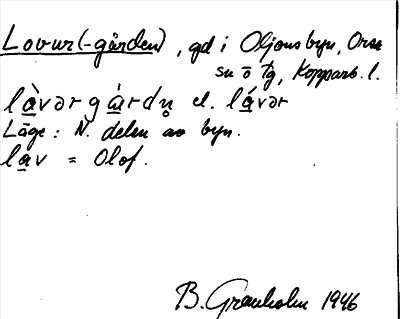 Lovur(-gården), gd i Oljonsbyn, Orsa
sn o tg, Kopparb. l.
làvərgárdn̥ el. lávər
Läge: N. delen av byn.
lav = Olof.
B. Granholm 1946